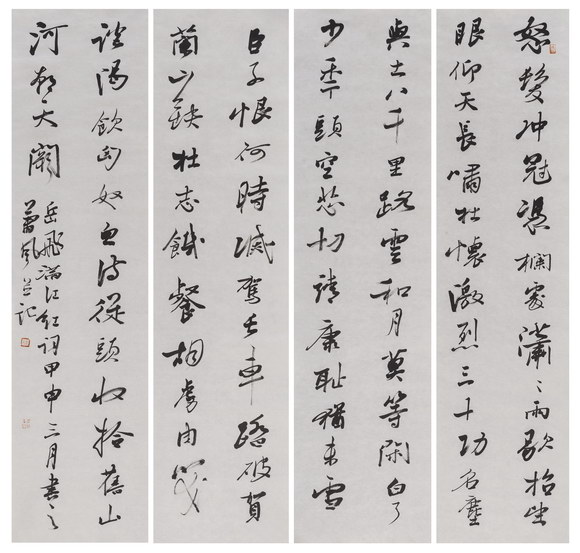 怒髮冲冠憑欄處瀟〻雨歇抬望
眼仰天長嘯壯懷激烈三十功名塵
與土八千里路雲和月莫等閑白了
少年頭空悲切靖康耻猶未雪
臣子恨何時滅駕長車踏破賀
蘭山缺壯志饑餐胡虜肉笑
談渴飲匈奴血待從頭收拾舊山
河朝天闕
岳飛滿江紅詞甲申三月書之
并記